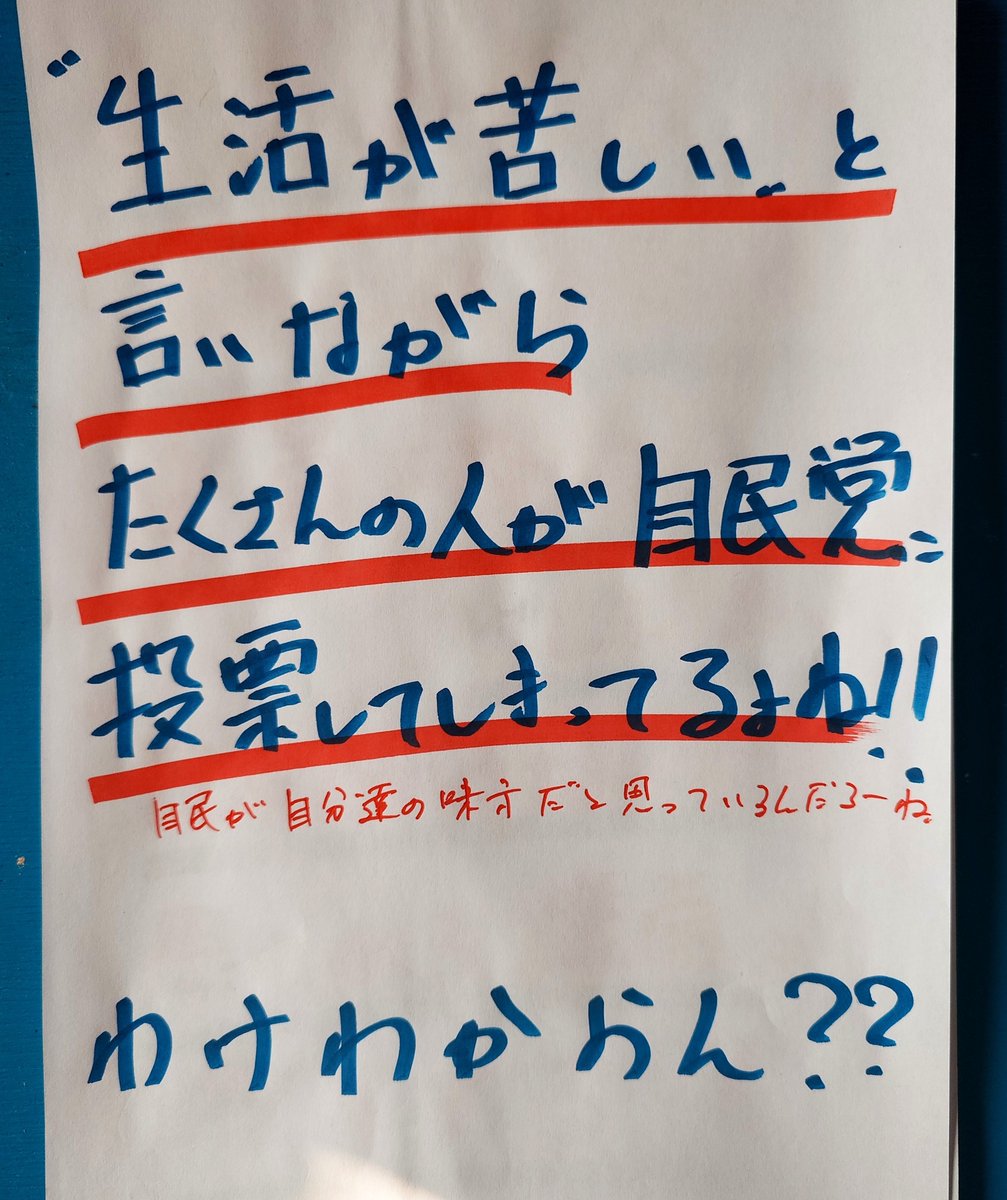 "生活が苦しい"と
言いながら
たくさんの人が自民党に
投票してしまってるよね!!
自民が自分達の味方だと思っているんだろーね。
わけわからん??